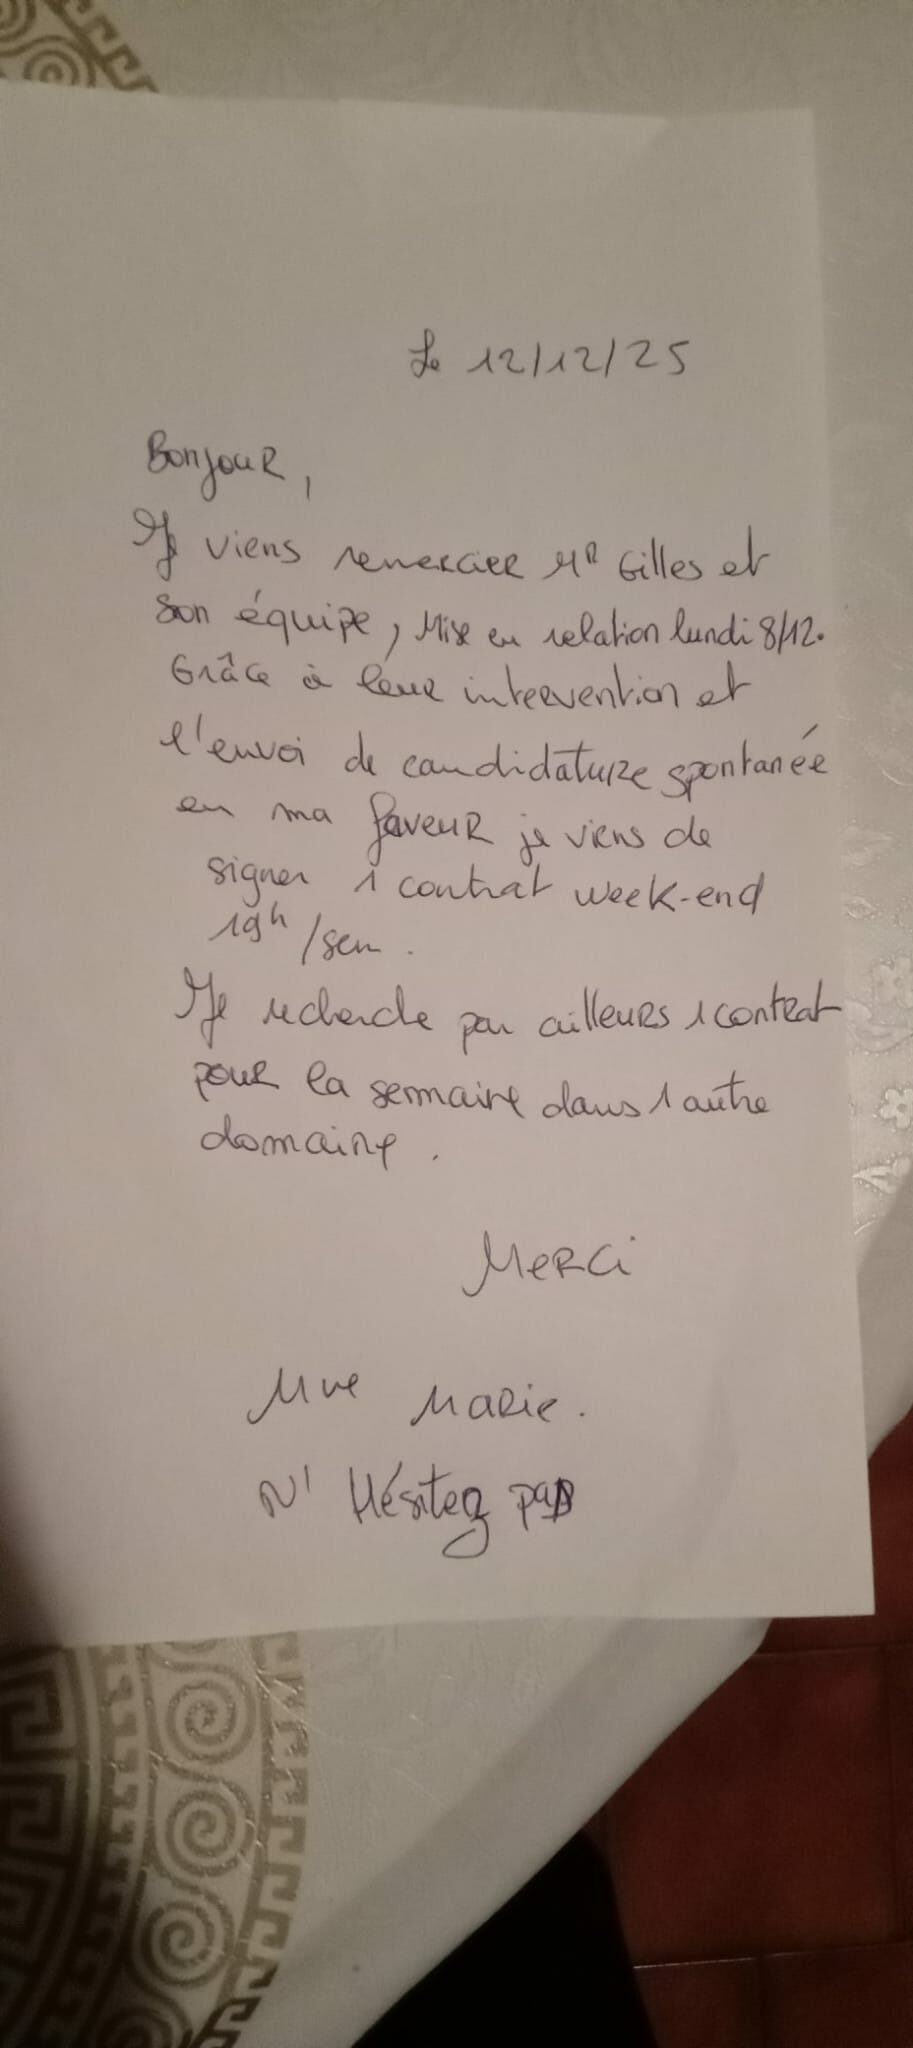 Le 12/12/25
Bonjour,
Je viens remercier Mr Gilles et
son équipe, Mise en relation lundi 8/12.
Grâce à leur intervention et
l'envoi de candidature spontanée
en ma faveur je viens de
signer 1 contrat week-end
19h/sem.
Je recherche par ailleurs 1 contrat
pour la semaine dans 1 autre
domaine.
Merci
Mme Marie.
N'Hésitez pas